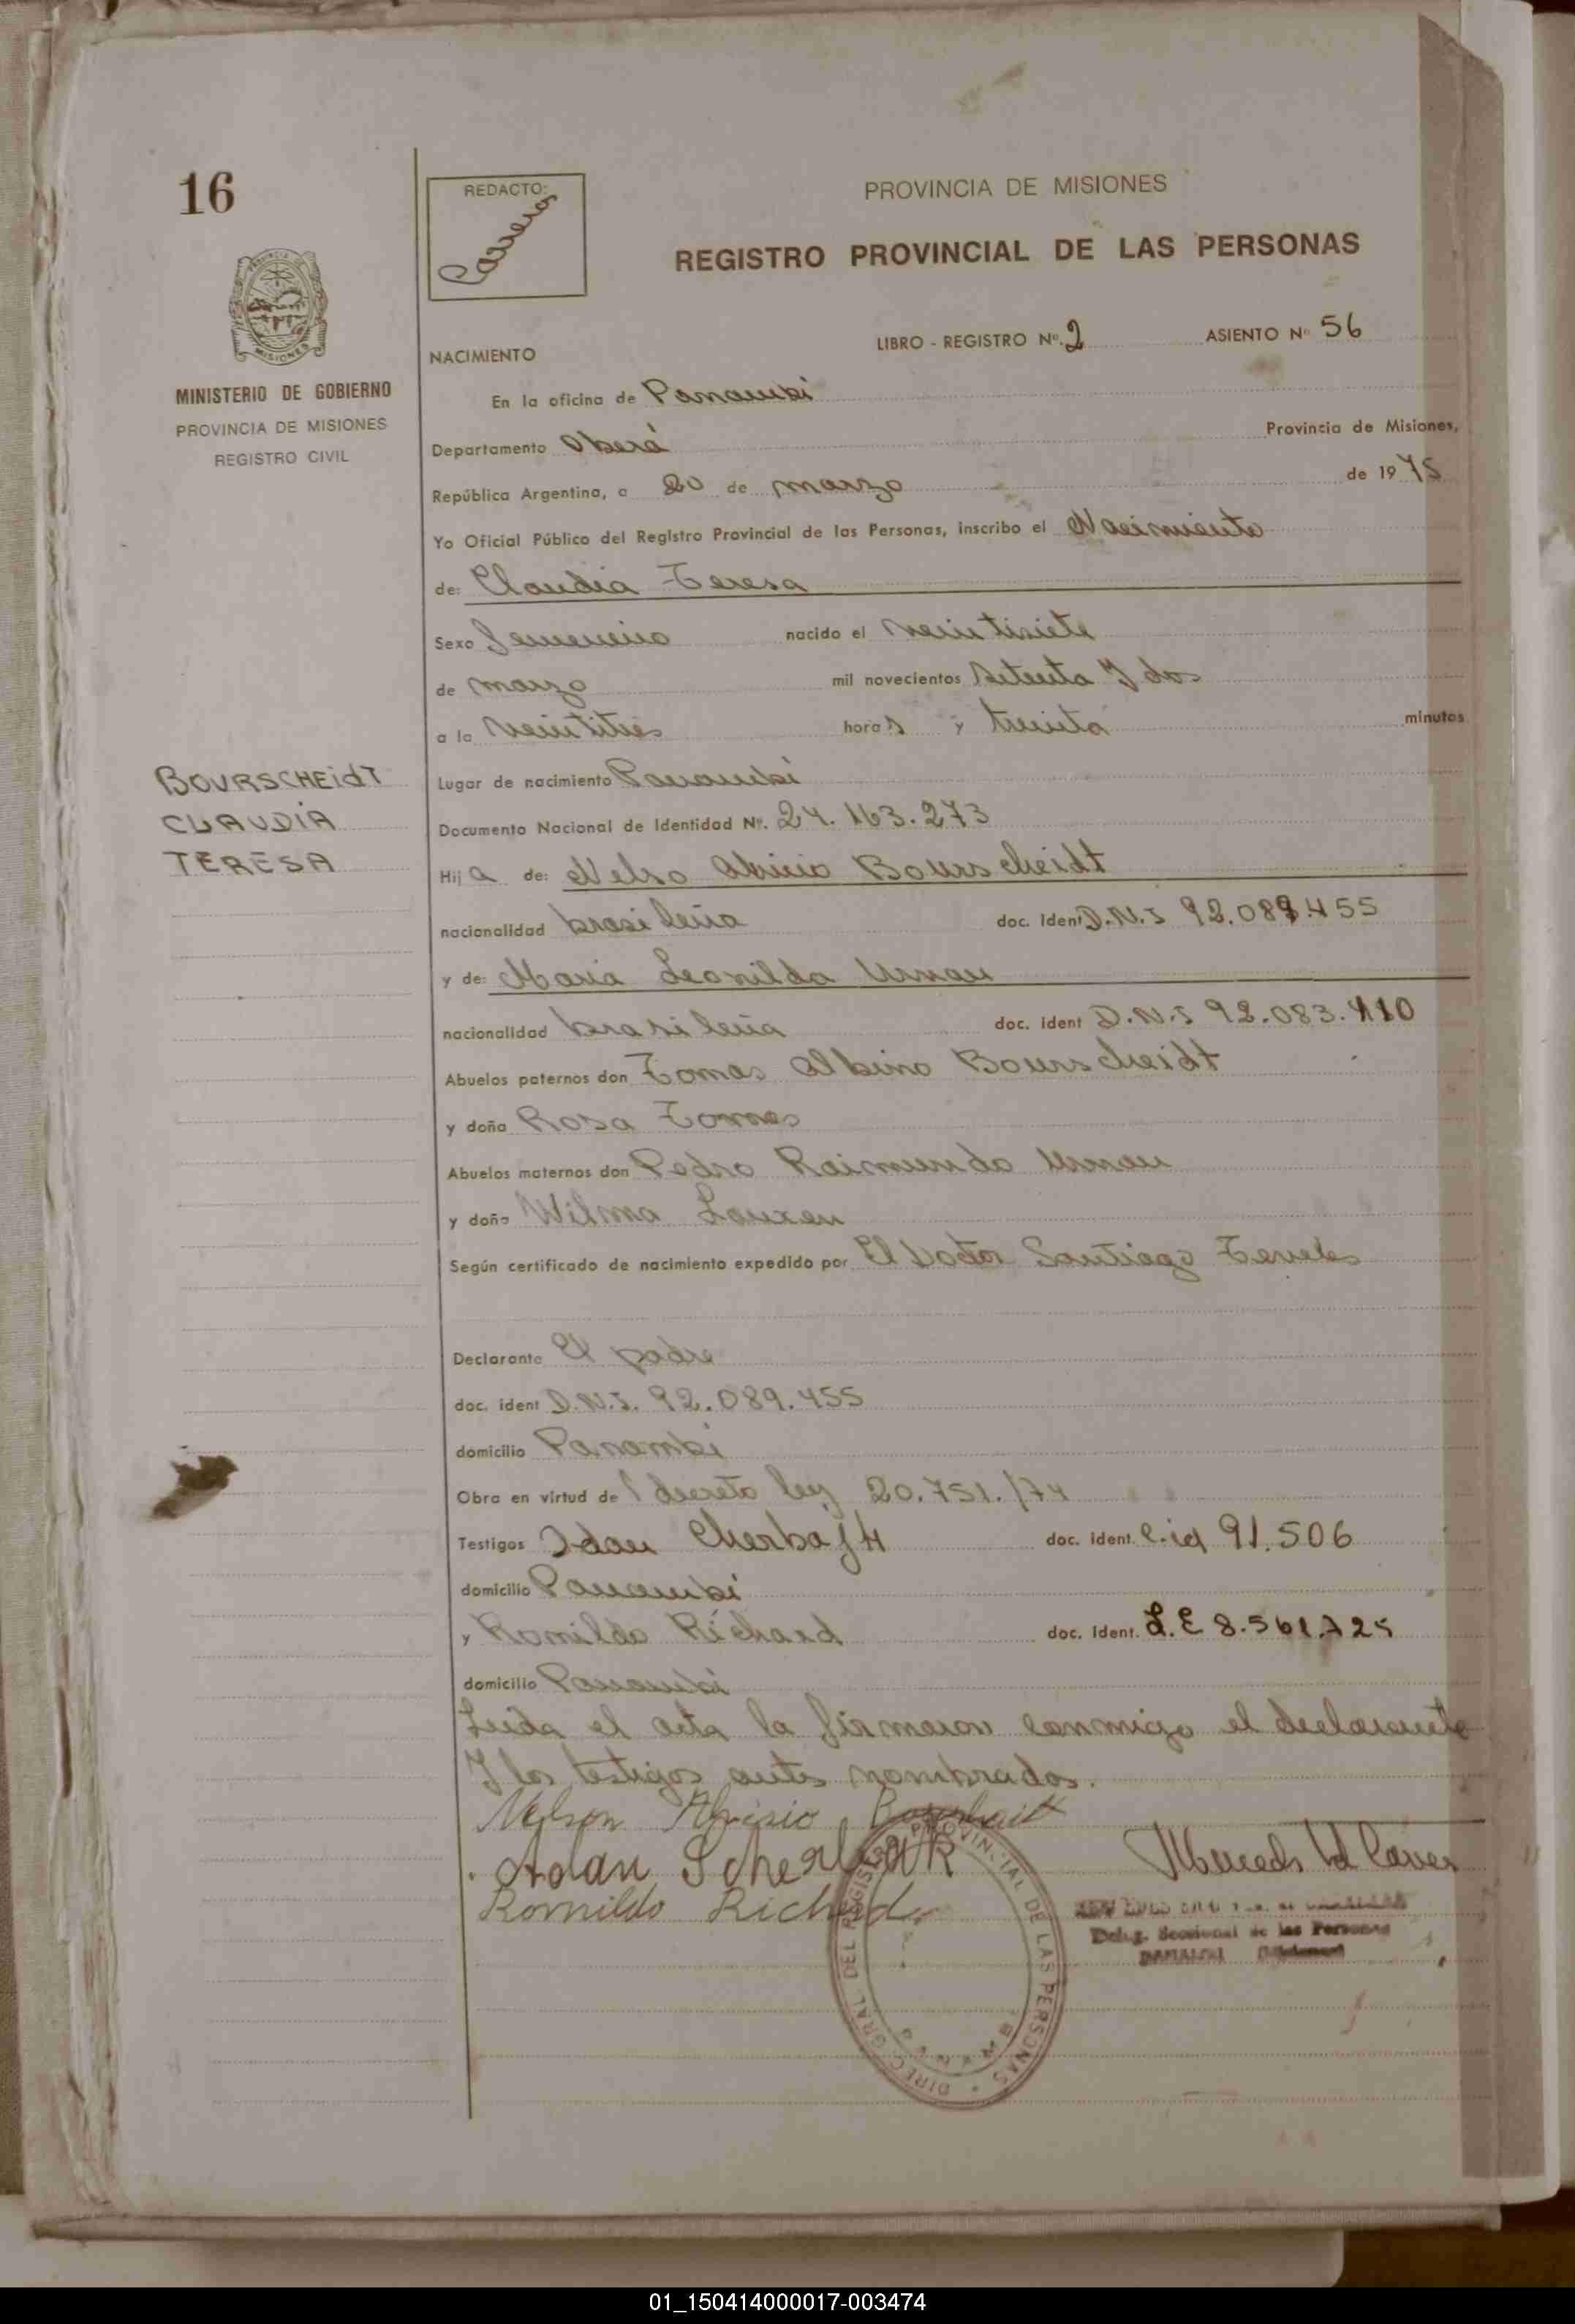 16
REDACTO:
Carreras
PROVINCIA DE MISIONES
REGISTRO PROVINCIAL DE LAS PERSONAS
MISIONES
MINISTERIO DE GOBIERNO
PROVINCIA DE MISIONES
REGISTRO CIVIL
LIBRO - REGISTRO Nº. 2 ASIENTO Nº 56
NACIMIENTO
En la oficina de Panambí
Departamento Oberá Provincia de Misiones,
República Argentina, a 20 de marzo de 1975
Yo Oficial Público del Registro Provincial de las Personas, inscribo el Nacimiento
de: Claudia Teresa
Sexo femenino nacido el veintisiete
de marzo mil novecientos setenta y dos
a la veintitres horas y treinta minutos
Lugar de nacimiento Panambi
BOURSCHEIDT
CLAUDIA
TERESA
Documento Nacional de Identidad Nº. 24.163.273
Hija de: Nelso Aloisio Bourscheidt
nacionalidad brasileña doc. Ident D.N.I 92.089.455
y de: Maria Leonilda Urnau
nacionalidad brasileña doc. ident D.N.I 92.083.410
Abuelos paternos don Tomas Albino Bourscheidt
y doña Rosa Tomes
Abuelos maternos don Pedro Raimundo Urnau
y doña Wilma Lauxen
Según certificado de nacimiento expedido por El Doctor Santiago
Declarante El padre
doc. ident D.N.I. 92.089.455
domicilio Panambi
Obra en virtud del decreto ley 20.751./74
Testigos Adan doc. ident. C.id 91.506
domicilio Panambi
y Romildo Richard doc. Ident. L.E 8.561.725
domicilio Panambi
Leida el acta la firmaron conmigo el declarante
y los testigos antes nombrados.
Nelson Aloisio Bourscheidt
Adan Scherbak
Romildo Richard
DIREC. GRAL. DEL REGISTRO PROVINCIAL DE LAS PERSONAS
PANAMBI
Deleg. Seccional de las Personas
PANAMBI (Misiones)
01_150414000017-003474